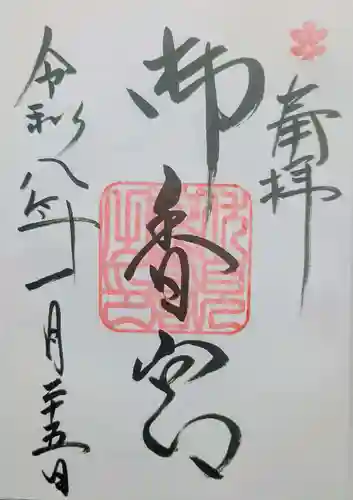 奉拝
御香宮
令和八年一月二十五日